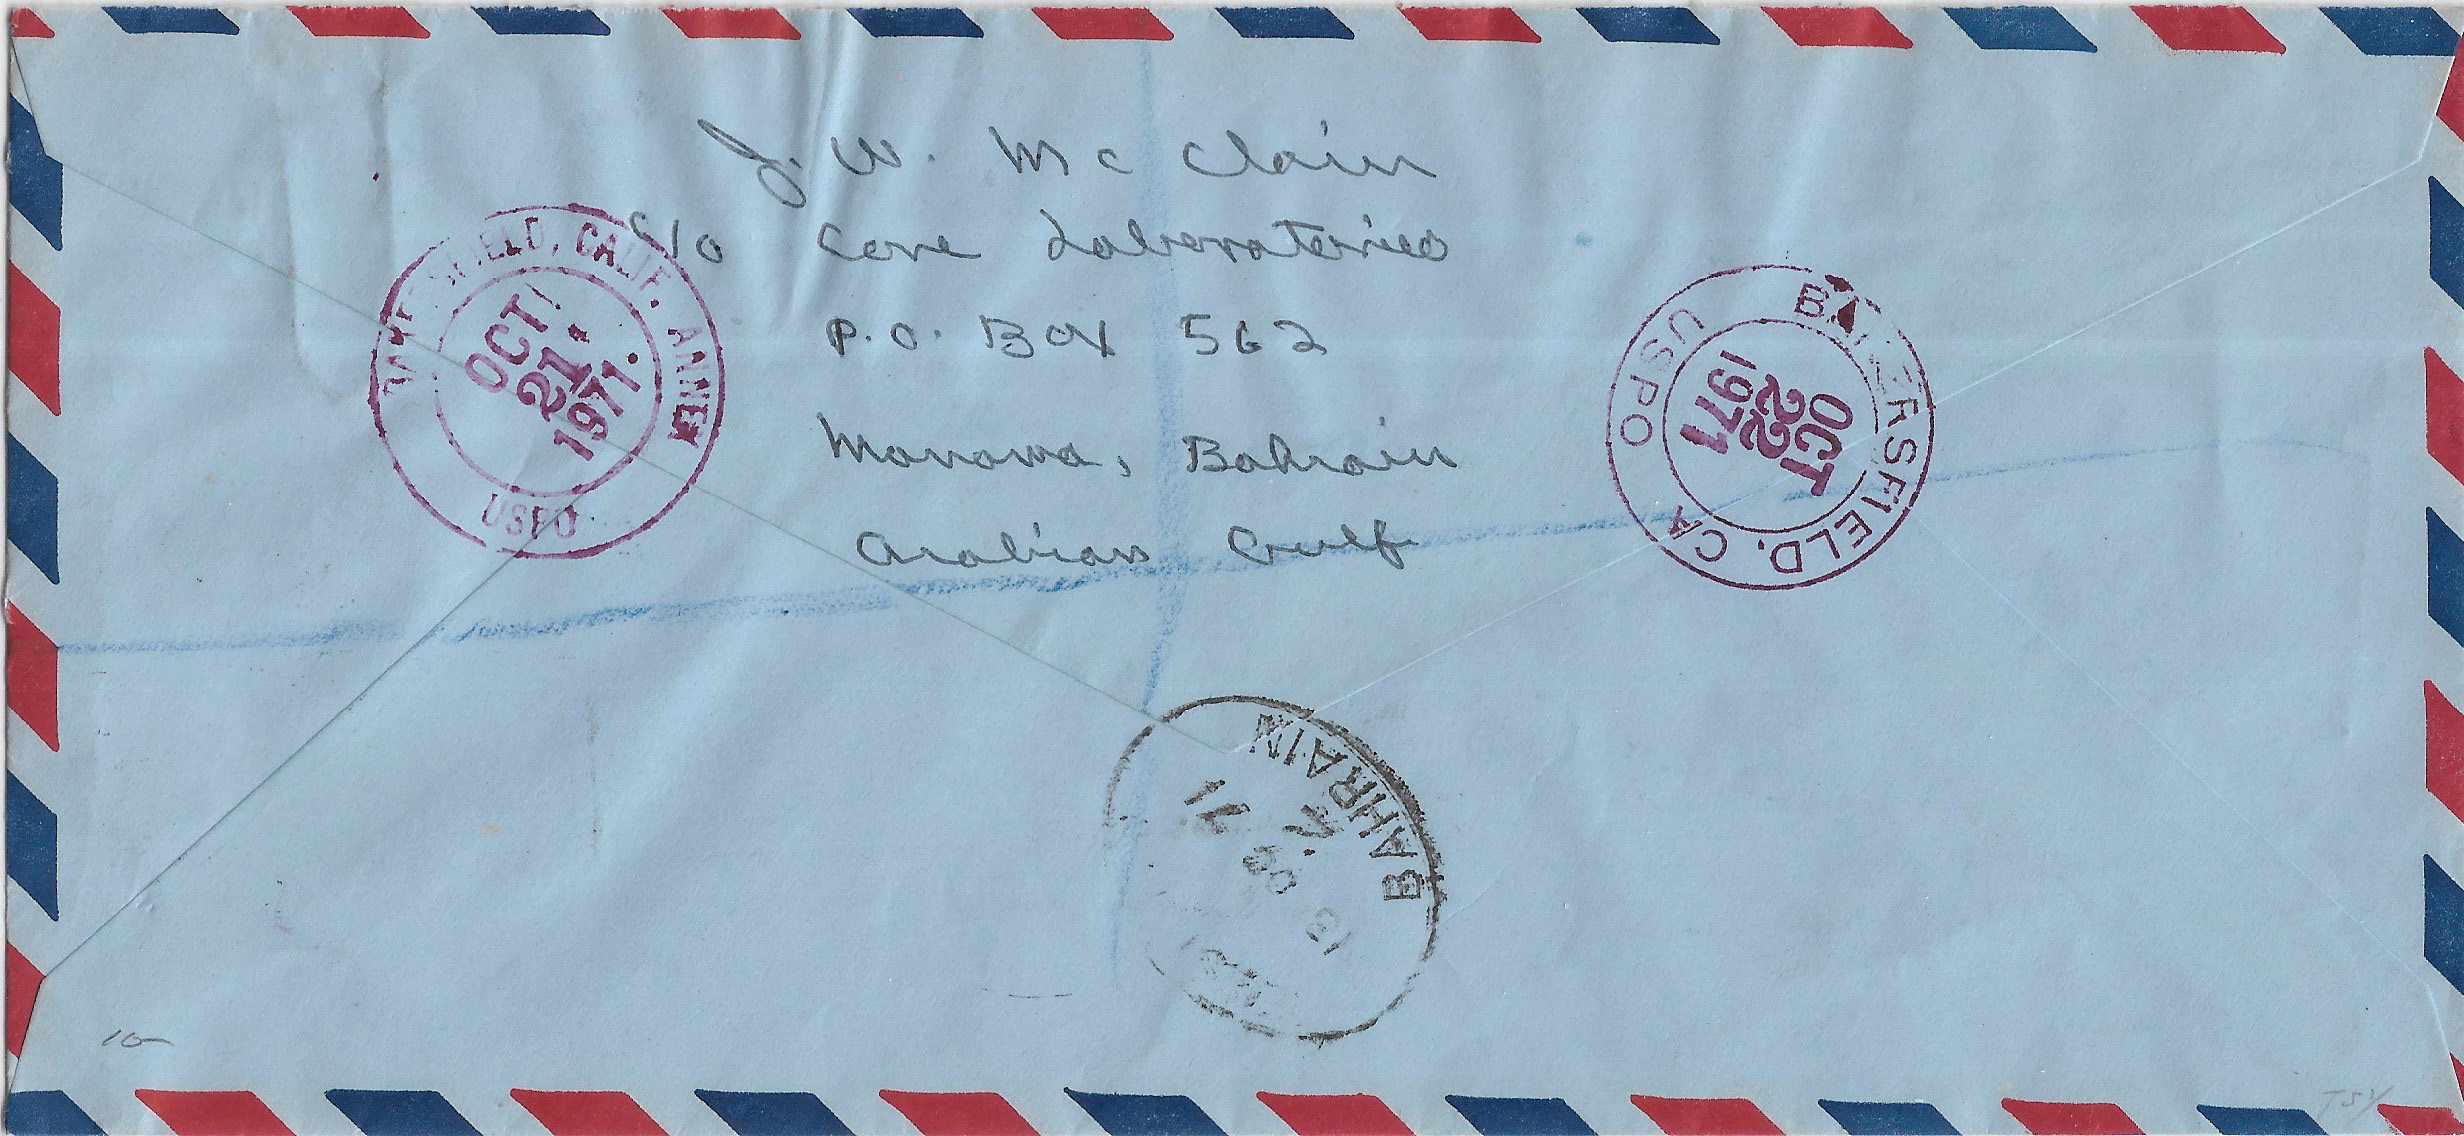 J. W. McClain
c/o Core Laboratories
P.O. Box 562
Manama, Bahrain
Arabian Gulf
BAKERSFIELD, CALIF. ANNEX
OCT
21
1971
USPO
BAKERSFIELD, CA
OCT
22
1971
USPO
BAHRAIN
71
10